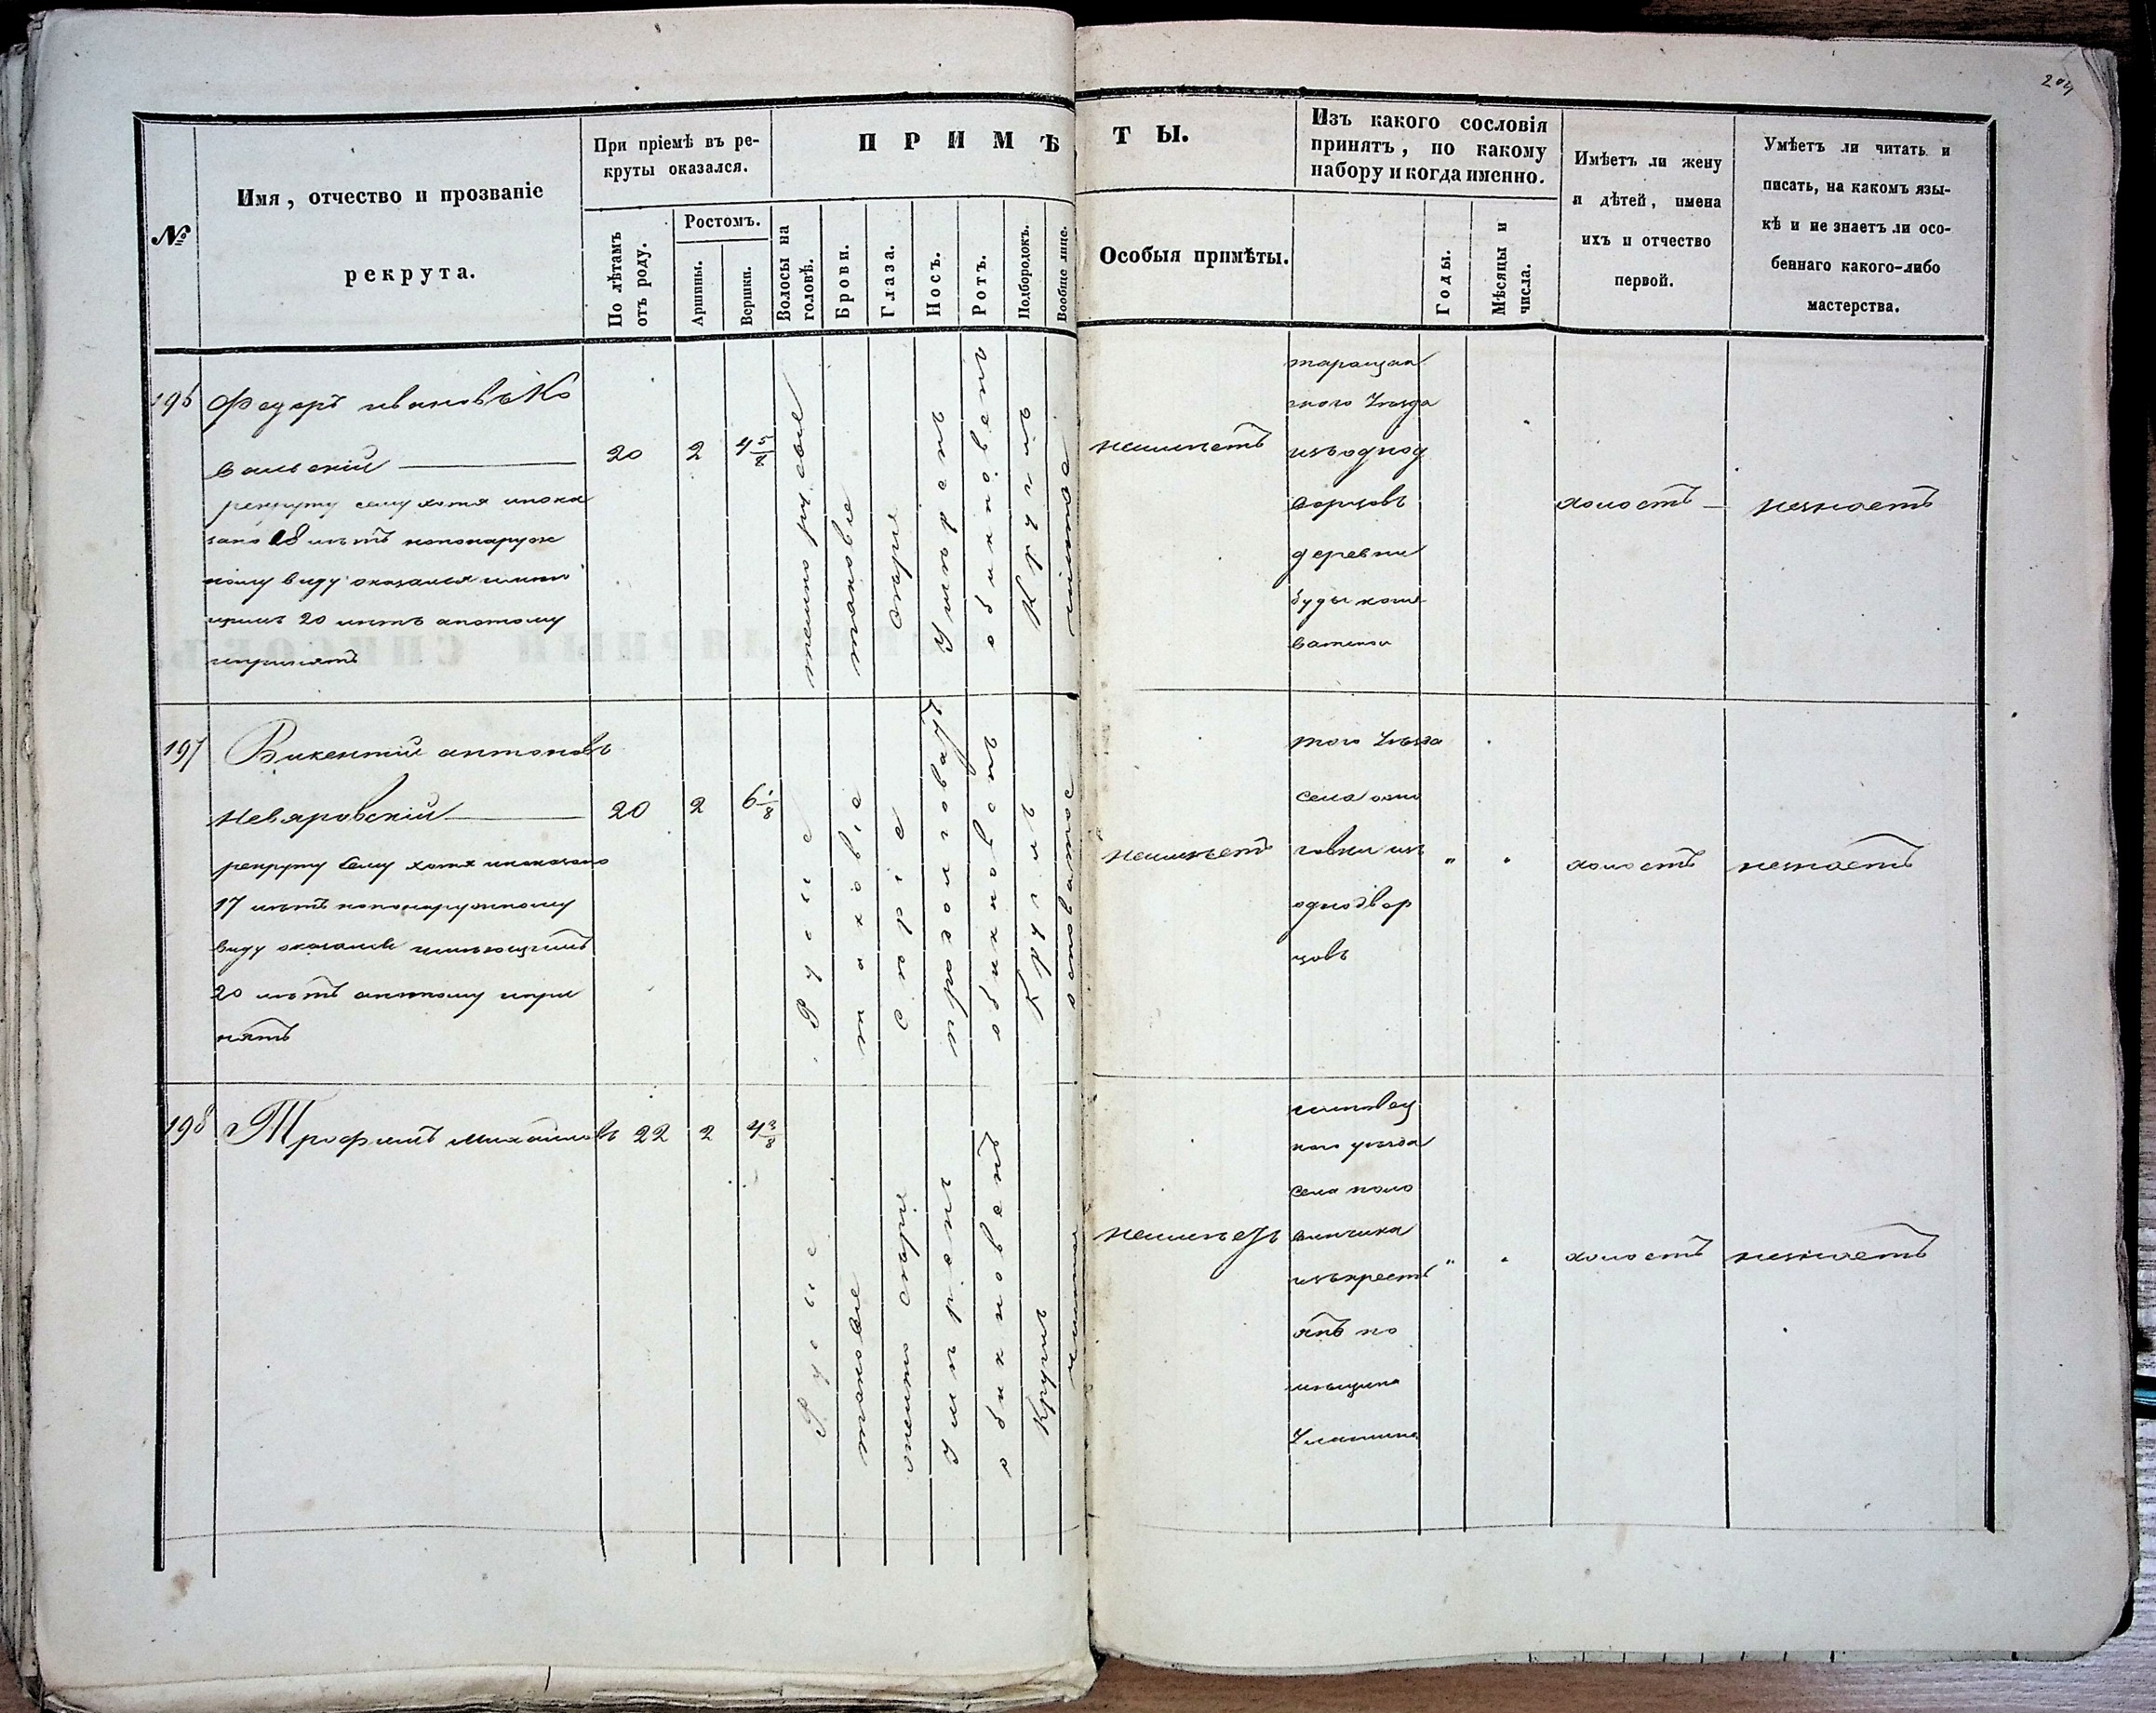 204
№
Имя, отчество и прозваніе
рекрута.
При пріемѣ въ ре-
круты оказался.
По лѣтамъ
отъ роду.
Ростомъ.
Аршины.
Вершки.
ПРИМѢТЫ.
Волосы на
головѣ.
Брови.
Глаза.
Носъ.
Ротъ.
Подбородокъ.
Вообще лице.
Особыя примѣты.
Изъ какого сословія
принятъ, по какому
набору и когда именно.
Годы.
Мѣсяцы и
числа.
Имѣетъ ли жену
и дѣтей, имена
ихъ и отчество
первой.
Умѣетъ ли читать и
писать, на какомъ язы-
кѣ и не знаетъ ли осо-
беннаго какого-либо
мастерства.
196
Федоръ ивановъ Ко
вальскій
рекруту сему хотя ипока
зано 18 лѣтъ нопонаруж
ному виду оказался имею
щимъ 20 лѣтъ апотому
ипринятъ
20
2
4 5/8
темно русые
таковые
Умѣренъ
обикновенъ
Круглъ
неимѣетъ
таращан
ского Уезда
изъоднод
ворцовъ
деревни
буды
холостъ
незнаетъ
197
Викентій антоновъ
Невяровскій
рекруту Сему хотя ипоказано
17 лѣтъ нопонаружному
виду оказался имѣющимъ
20 лѣтъ апотому ипри
нятъ
20
2
6 1/8
Русые
таковіе
Сѣріе
продолговат
обикновенъ
Круглъ
неимѣетъ
того Уезда
Села
изъ
однодвор
цовъ
холостъ
незнаетъ
198
Трофимъ Михайловъ
22
2
4 3/8
Русые
таковые
темно сѣріе
Умѣренъ
обикновенъ
Круглъ
неимѣетъ
липовец
кого уѣзда
Села поло
винчика
изъкресть
янъ по
мѣщика
холостъ
незнаетъ